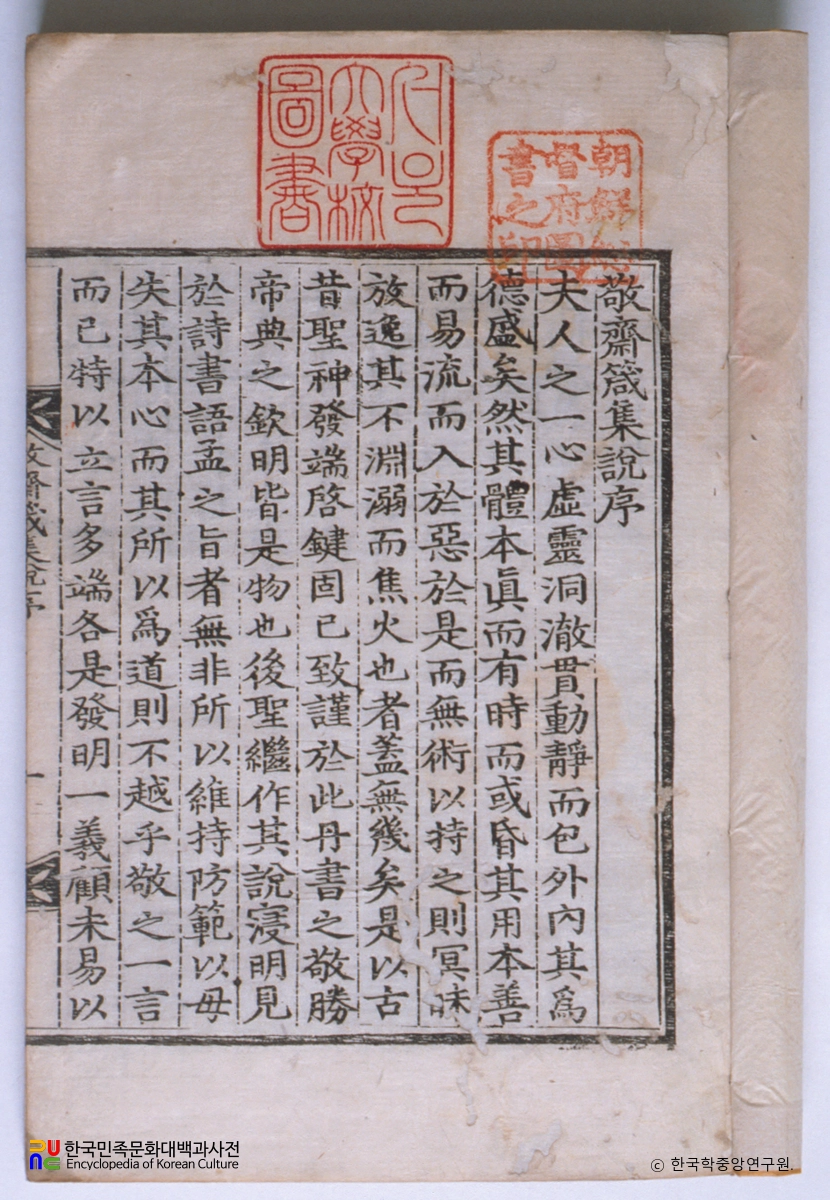 서울
大學校
圖書
朝鮮總
督府圖
書之印
敬齋箴集說序
夫人之一心虛靈洞澈貫動靜而包外內其爲
德盛矣然其體本眞而有時而或昏其用本善
而易流而入於惡於是而無術以持之則冥昧
放逸其不淵溺而焦火也者蓋無幾矣是以古
昔聖神發端啓鍵固已致謹於此丹書之敬勝
帝典之欽明皆是物也後聖繼作其說寖明見
於詩書語孟之旨者無非所以維持防範以毋
失其本心而其所以爲道則不越乎敬之一言
而已特以立言多端各是發明一義顧未易以
敬齋箴集說序 一
한국민족문화대백과사전
Encyclopedia of Korean Culture
© 한국학중앙연구원